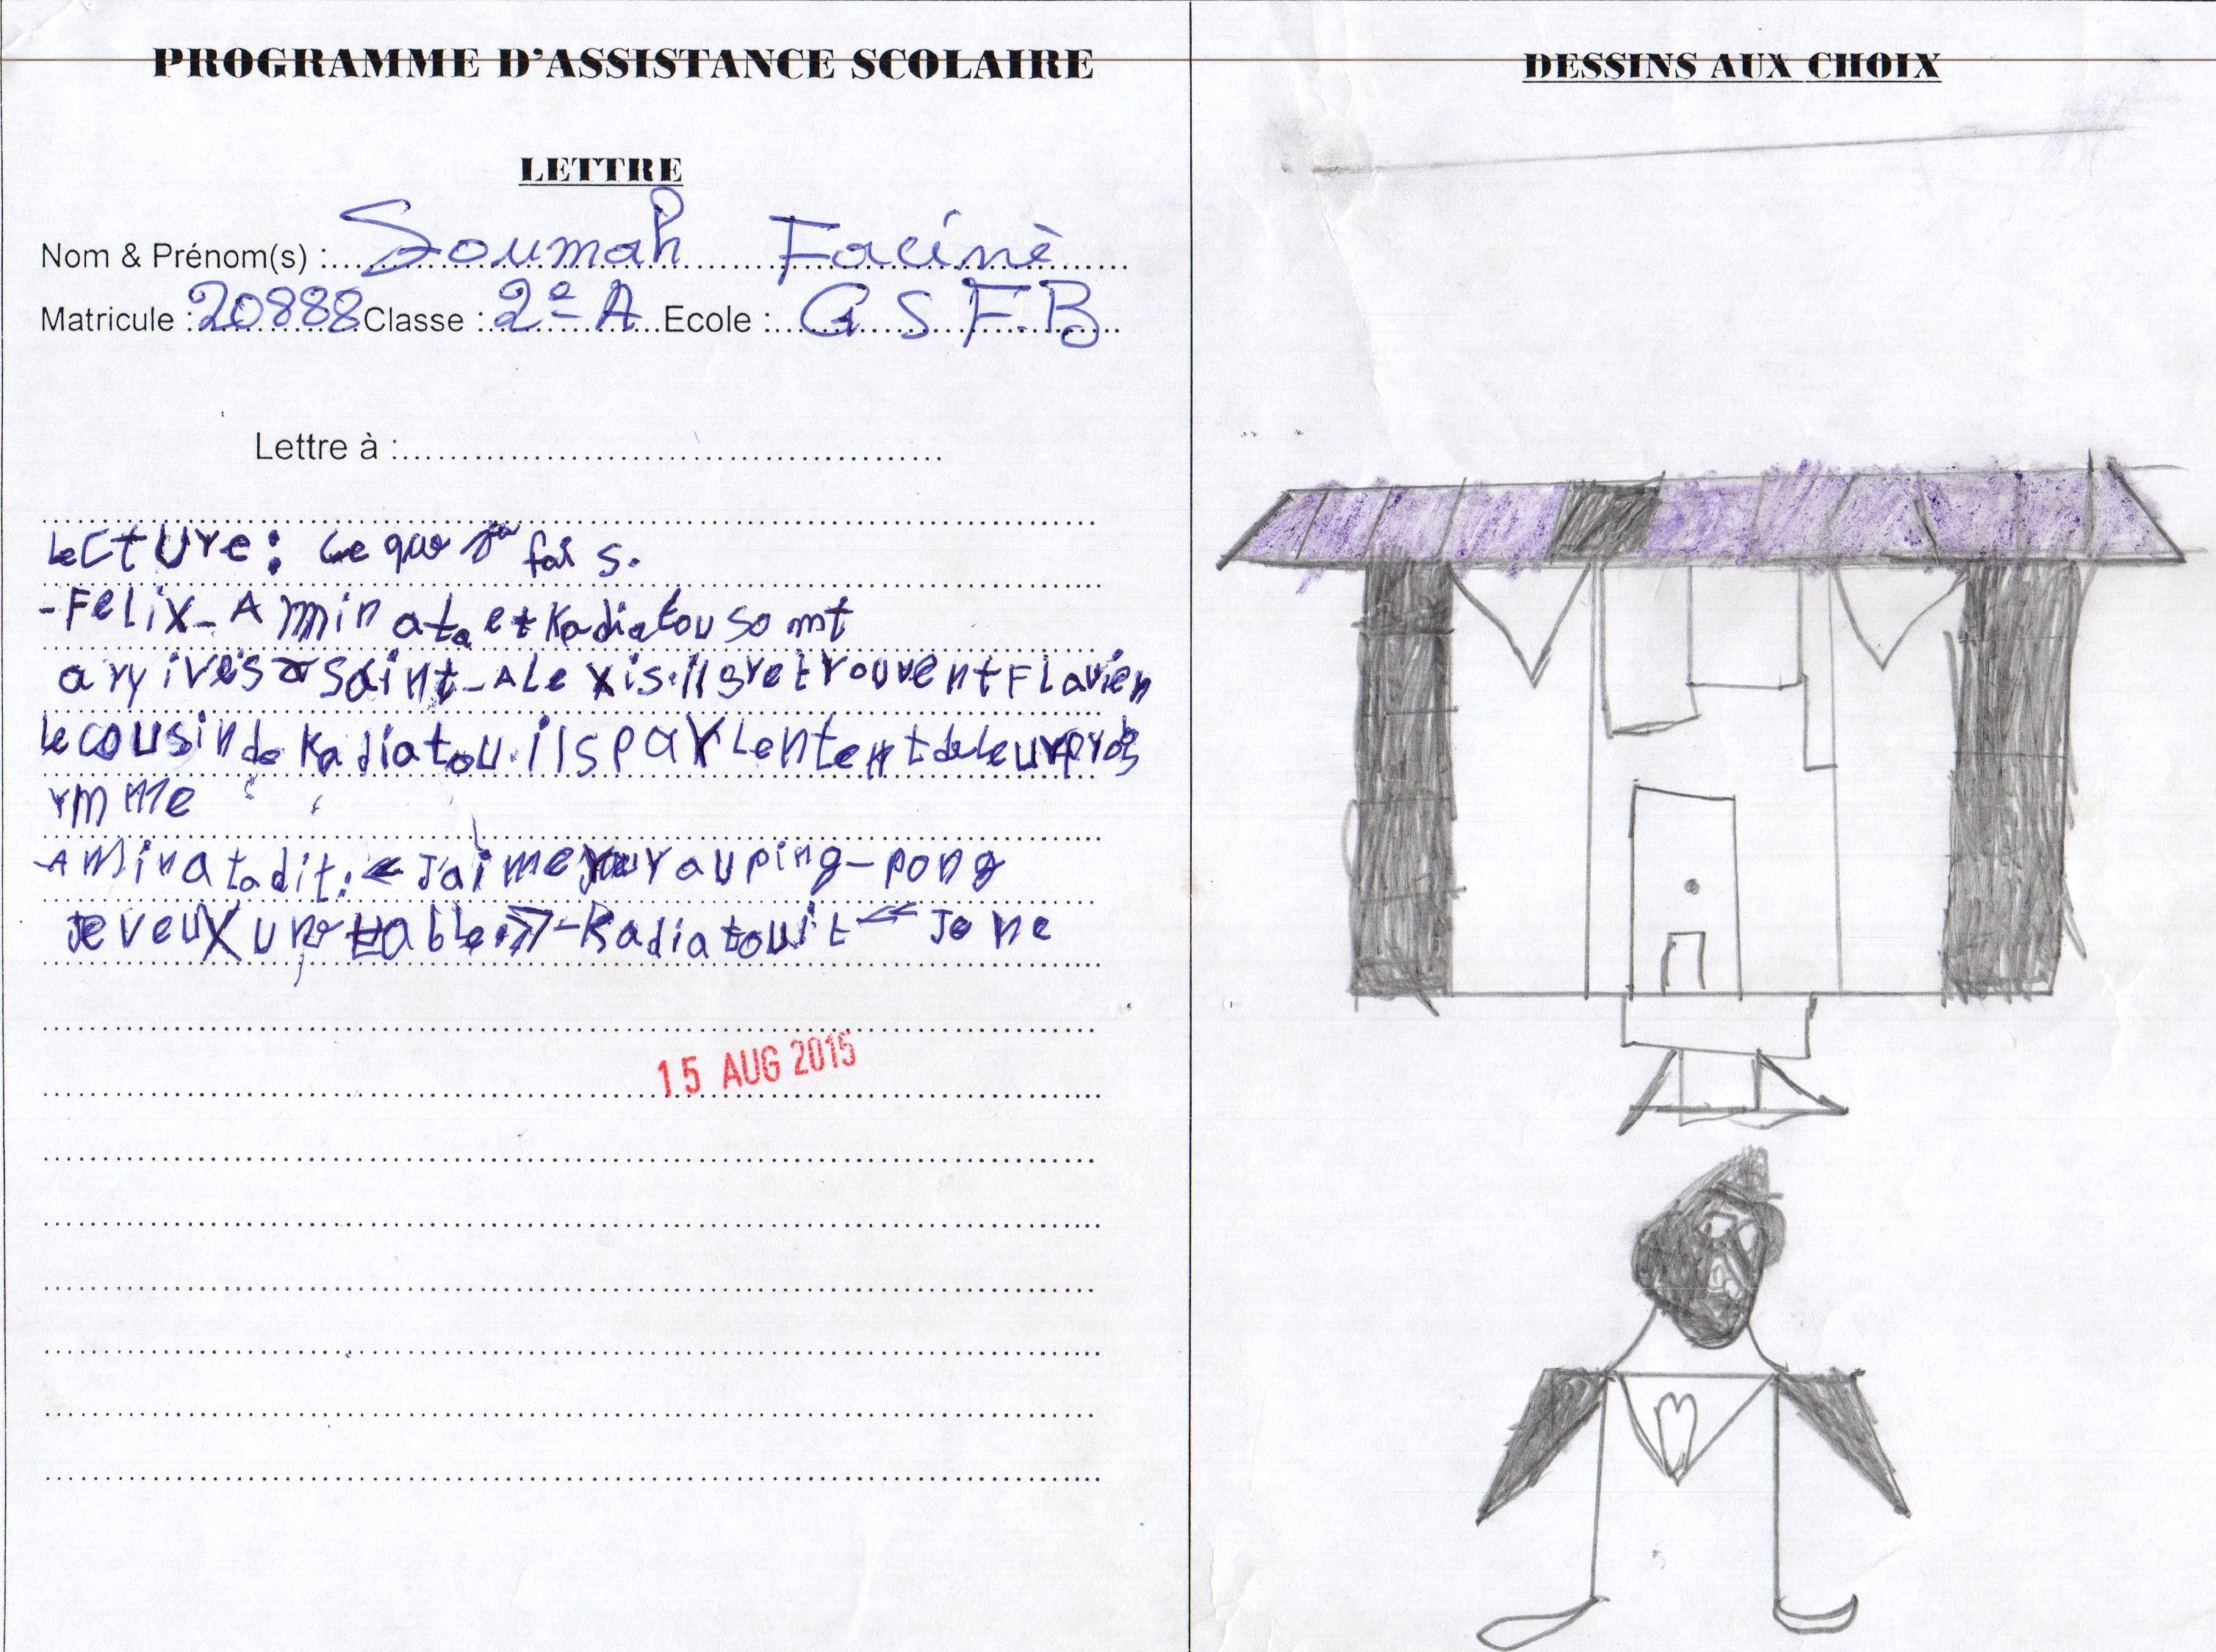 PROGRAMME D'ASSISTANCE SCOLAIRE
LETTRE
Nom & Prénom(s) : Soumah Facinè
Matricule : 20888 Classe : 2e A Ecole : G S F.B
Lettre à :
Lecture : ce que je fais.
- Felix - Aminata et Kadiatou somt
arrivés a saint-Alexis. ils retrouvent Flavien
le cousin de Kadiatou. ils parlent de leur prog
rmme
- Aminata dit : « J'aime jouer au ping-pong
Je veux une table. » - Kadiatou it « Je ne
15 AUG 2015
DESSINS AUX CHOIX